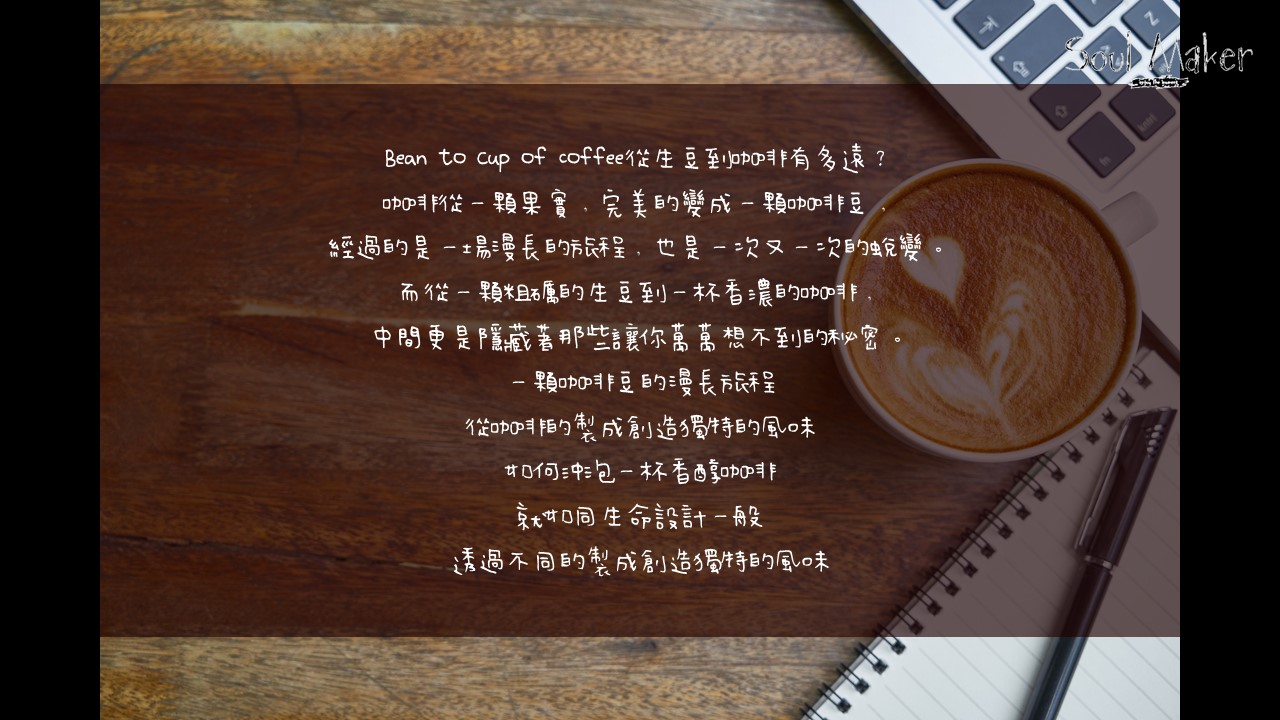 Soul Maker
Bean to cup of coffee從生豆到咖啡有多遠？
咖啡從一顆果實，完美的變成一顆咖啡豆，
經過的是一場漫長的旅程，也是一次又一次的蛻變。
而從一顆粗礪的生豆到一杯香濃的咖啡，
中間更是隱藏著那些讓你萬萬想不到的秘密。
一顆咖啡豆的漫長旅程
從咖啡的製成創造獨特的風味
如何沖泡一杯香醇咖啡
就如同生命設計一般
透過不同的製成創造獨特的風味